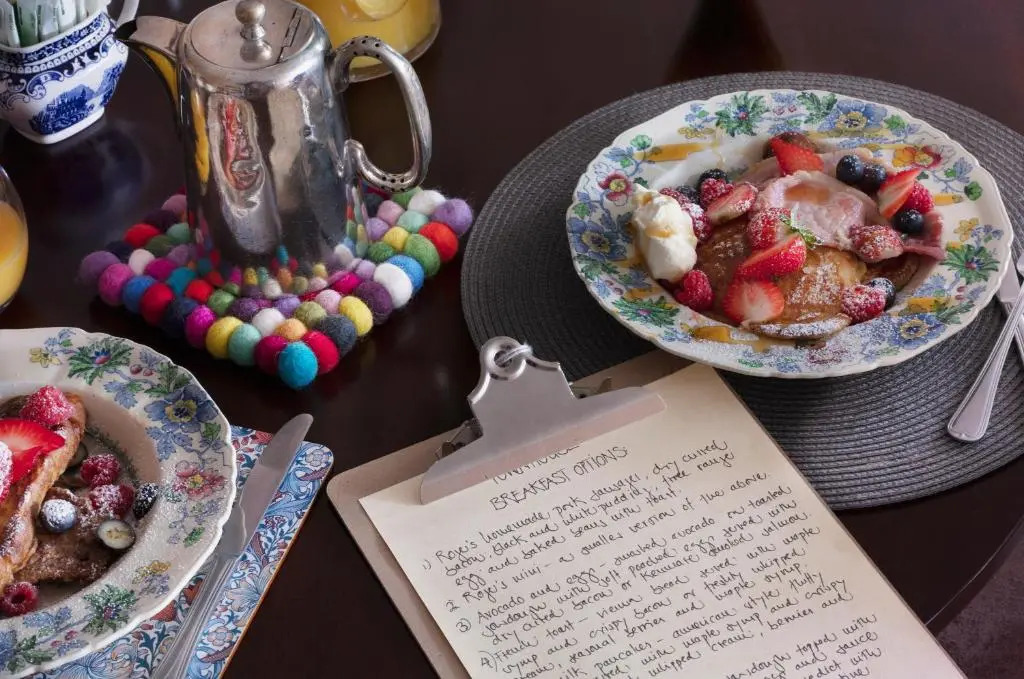 BREAKFAST OPTIONS:
1) Roje's homemade pork sausages, dry cured
bacon, black and white pudding, free range
egg and baked beans with toast.
2) Roje's mini - a smaller version of the above
3) Avocado and egg, smashed avocado on toasted
sourdough with soft poached egg served with
dry cured bacon or Kenmare smoked salmon.
4) French toast - vienna bread served with maple
syrup and crispy bacon or freshly whipped
cream, seasonal berries and maple syrup.
milk pancakes - american style fluffy
with maple syrup and crispy
whipped cream, berries and
sourdough topped with
and sauce
with